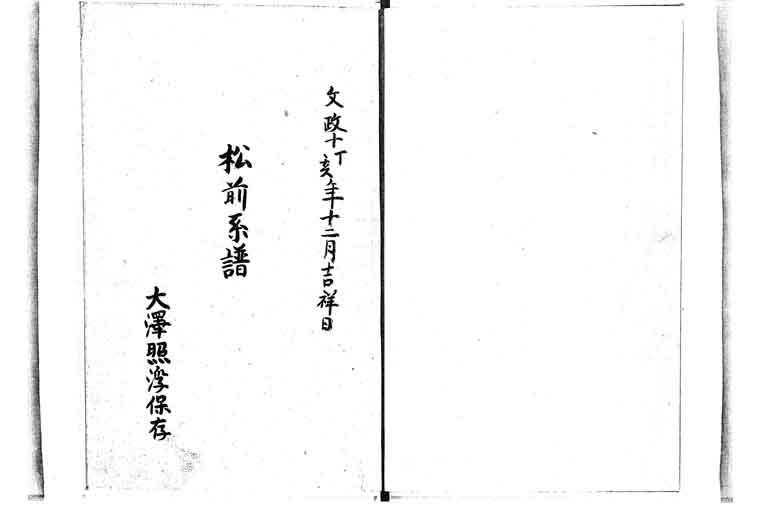 文政十丁亥年十二月吉祥日
松前系譜
大澤照浮保存